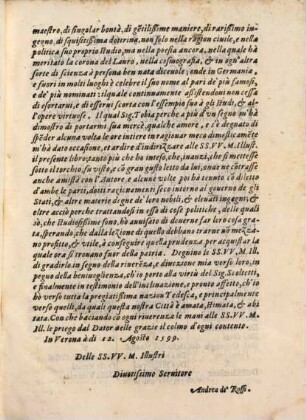 maestro, di singular bontà, di gẽtilissime maniere, di rarissimo in-
gegno, di squisitissima dottrina, non solo nella ragion ciuile, e nella
politica suo proprio studio, ma nella poesia ancora, nella quale hà
meritato la corona del Lauro, nella cosmografia, & in ogn'altra
sorte di scienza à persona ben nata diceuole; onde in Germania,
e fuori in molti luoghi è celebre il suo nome al pari de' più famosi,
e de' più nominati: il quale continuamente assistendomi non cessa
di esortarmi, e di essermi scorta con l'essempio suo à gli studi, & al-
l'opere virtuose. Il qual Sig. Tobia perche à più d'un segno m'hà
dimostro di portarmi, sua mercè, qualche amore, e s'è degnato di
spẽder alcuna volta le ore intiere in ragionar meco dimesticamẽte
m'hà dato occasione, et ardire d'indirizzare alle SS. VV. M. Illust.
il presente libro; tanto più che hò inteso, che, inanzi, che si mettesse
sotto il torchio, fu visto, e cõ gran gusto letto da lui; onde ne cõtrasse
anche amistà con l'Autore e alcune volte poi hà tenuto cõ dilet-
to d'ambe le parti, dotti ragionamenti seco intorno al gouerno de gli
Stati, & altre materie degne de' loro nobili, & eleuati ingegni; &
oltre acciò perche trattandosi in essa di cose politiche, delle quali
sò, che studiosissimi sono, hò auuisato di douerne far loro cosa gra-
ta, sperando, che dalla lezione di quello debbiano trarne nõ mezza-
no profitto, & vtile, à conseguire quella prudenza, per acquistar la
quale ora si trouano fuor della patria. Degnino le SS. VV. M. Ill.
di gradirlo in segno della riuerenza, e diuozione mia verso loro, in
pegno della beniuoglienza, ch'io porto alla virtù del Sig. Scoltetti,
e finalmente in testimonio dell'inclinazione, e pronto affetto, ch'io
hò verso tutta la pregiatissima nazion Tedesca, e principalmente
verso quelli, da quali questa nostra Città è amata, stimata, & abi-
tata. Con che baciando cõ ogni riuerenza le mani alle SS. VV. M.
Ill. le priego dal Dator delle grazie il colmo d'ogni contento.
In Verona à dì 12. Agosto 1599.
Delle SS. VV. M. Illustri
Diuotissimo Seruitore
Andrea de' Rossi.